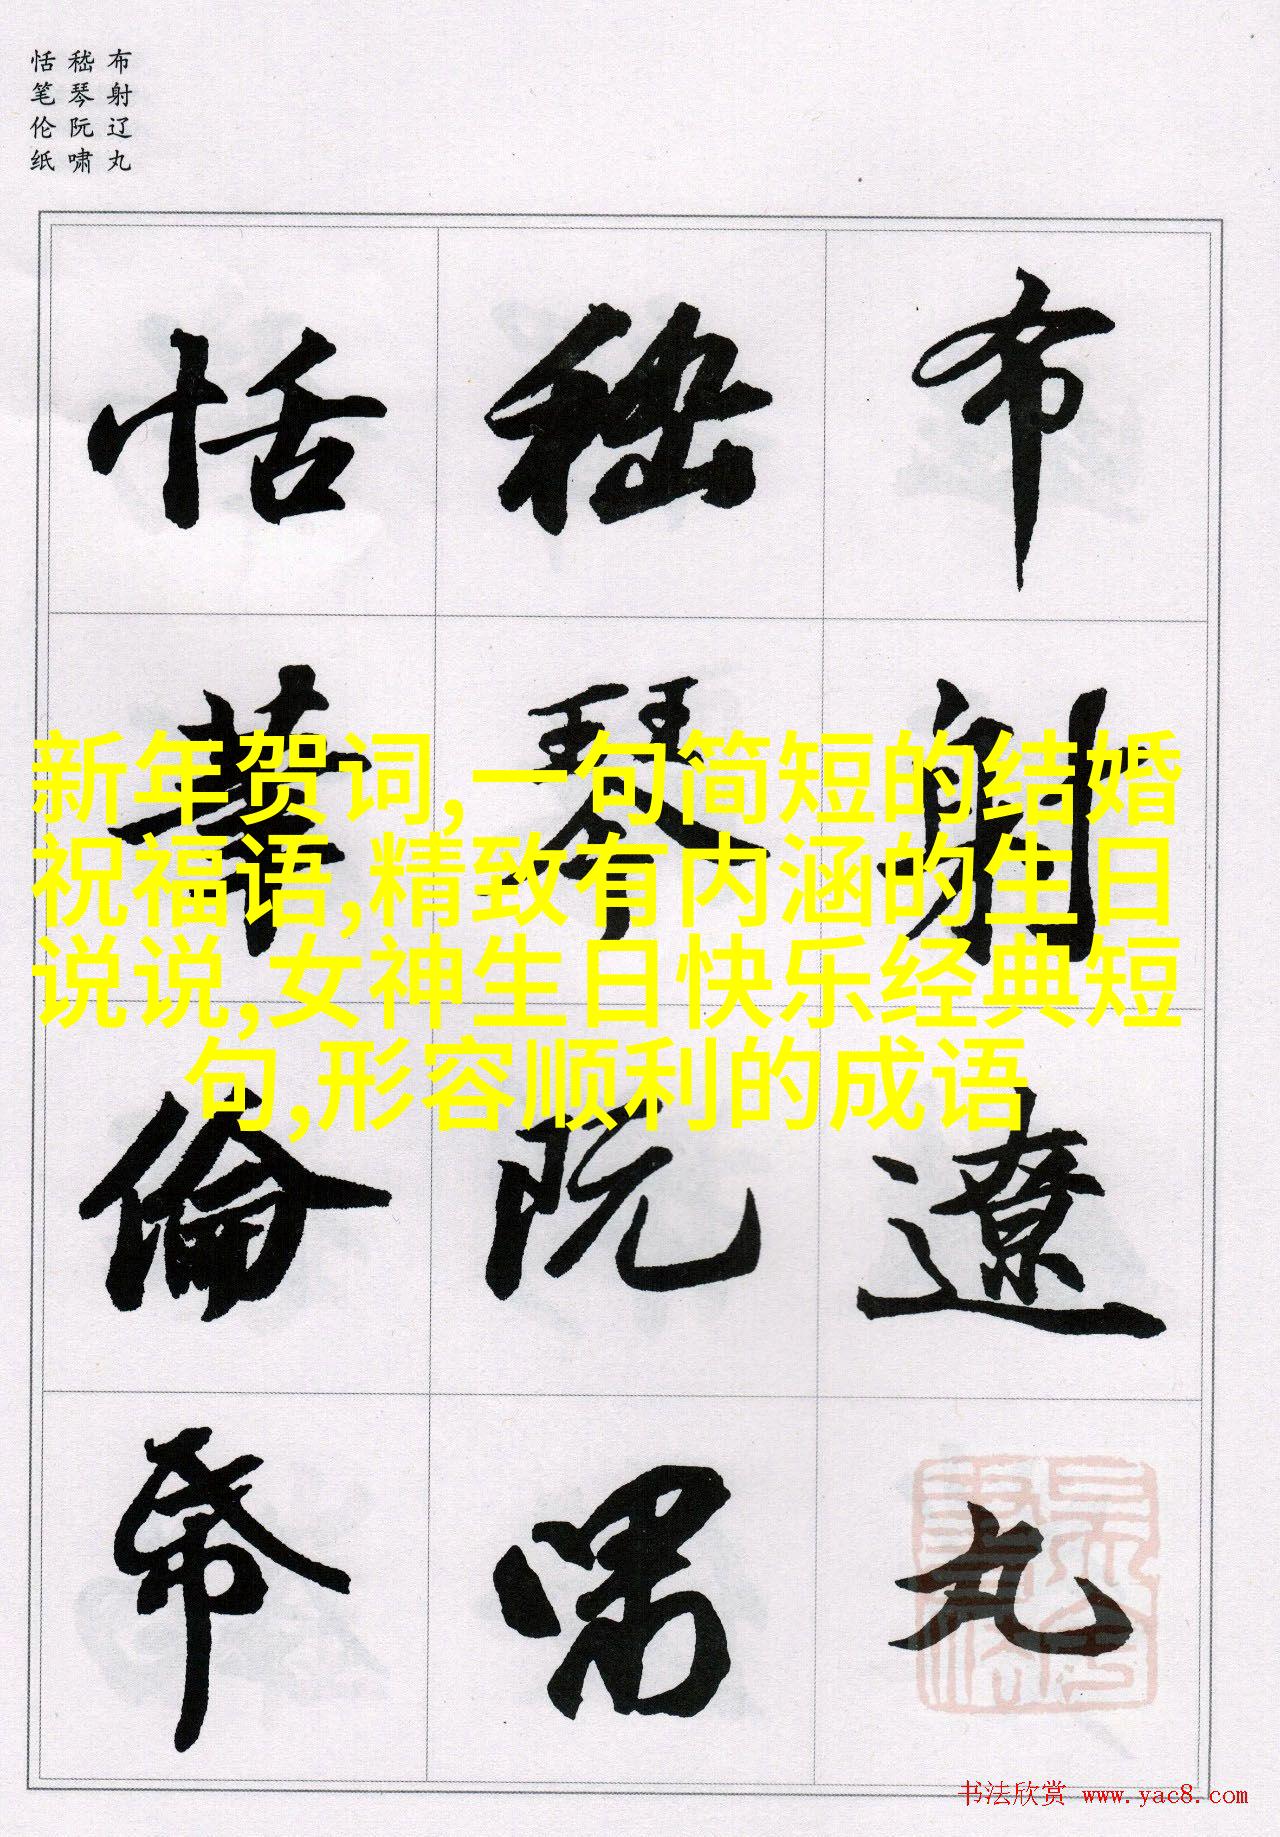 布射辽丸
嵇琴阮啸
恬笔伦纸
布射遼丸
嵇琴阮嘯
恬筆倫帋
新年贺词,一句简短的结婚
祝福语,精致有内涵的生日
说说,女神生日快乐经典短
句,形容顺利的成语
书法欣赏 www.yac8.com